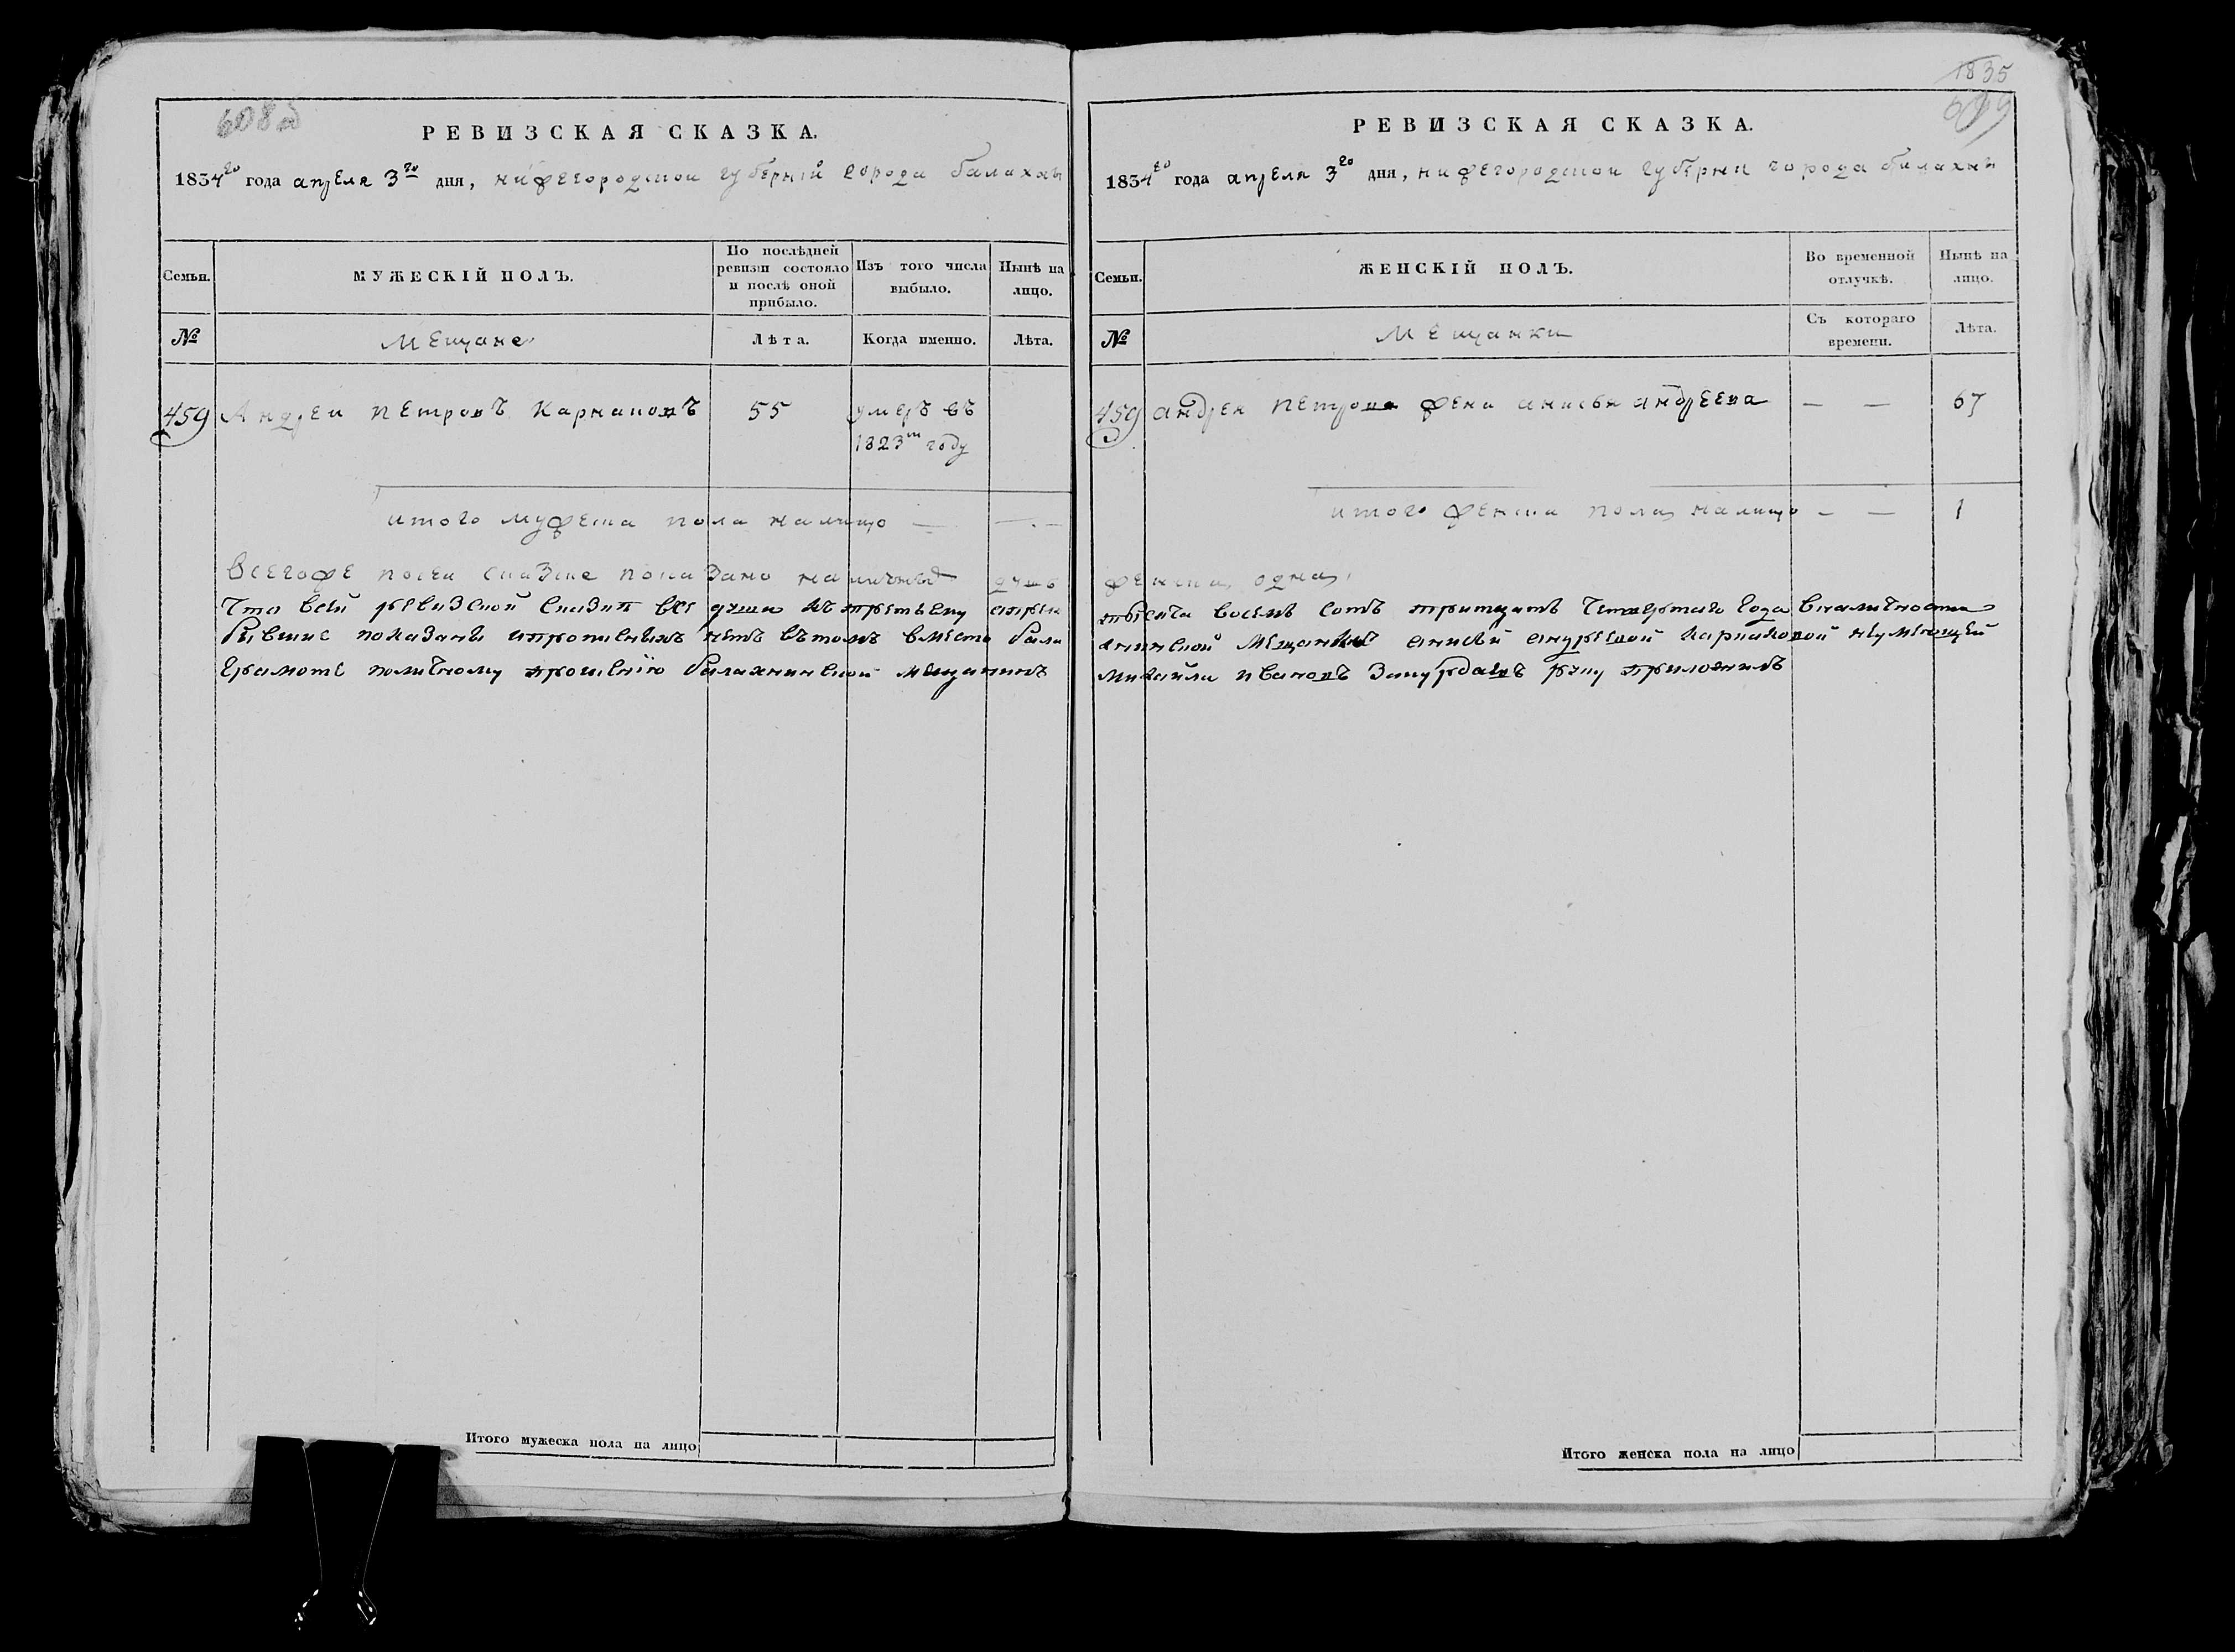 608 об
РЕВИЗСКАЯ СКАЗКА.
1834го года апреля 3го дня, нижегородской губерній города балахны
Семьи.
МУЖЕСКІЙ ПОЛЪ.
По послѣдней ревизіи состояло и послѣ оной прибыло.
Изъ того числа выбыло.
Нынѣ на лицо.
№
Мещане
Лѣта.
Когда именно.
Лѣта.
459 Андреи петровъ Карнаповъ 55 умеръ въ
1823м году
итого мужеска пола налицо — — —
всегоже посеи сказке показано наличныхъ душъ
Что всей ревизской сказки все души къ третьему апреля
бывшие показаны ипрописныхъ нетъ вътомъ вместо бала
Грамоте поличному прошению балахнинской мещанинъ
Итого мужеска пола на лицо
1835
609
РЕВИЗСКАЯ СКАЗКА.
1834го года апреля 3го дня, нижегородской губернии города балахны
Семьи.
ЖЕНСКІЙ ПОЛЪ.
Во временной отлучкѣ.
Нынѣ на лицо.
№
Мещанки
Съ котораго времени.
Лѣта.
459 андрея петрова жена анисья андреева — — 67
итого женска пола налицо — — 1
женска одна
тысеча восемь сотъ тритцать Четвертаго Года вналичности
хнинской Мещанки анисьи андреевой карнаповой неумеющей
михайла ивановъ руку приложилъ
Итого женска пола на лицо